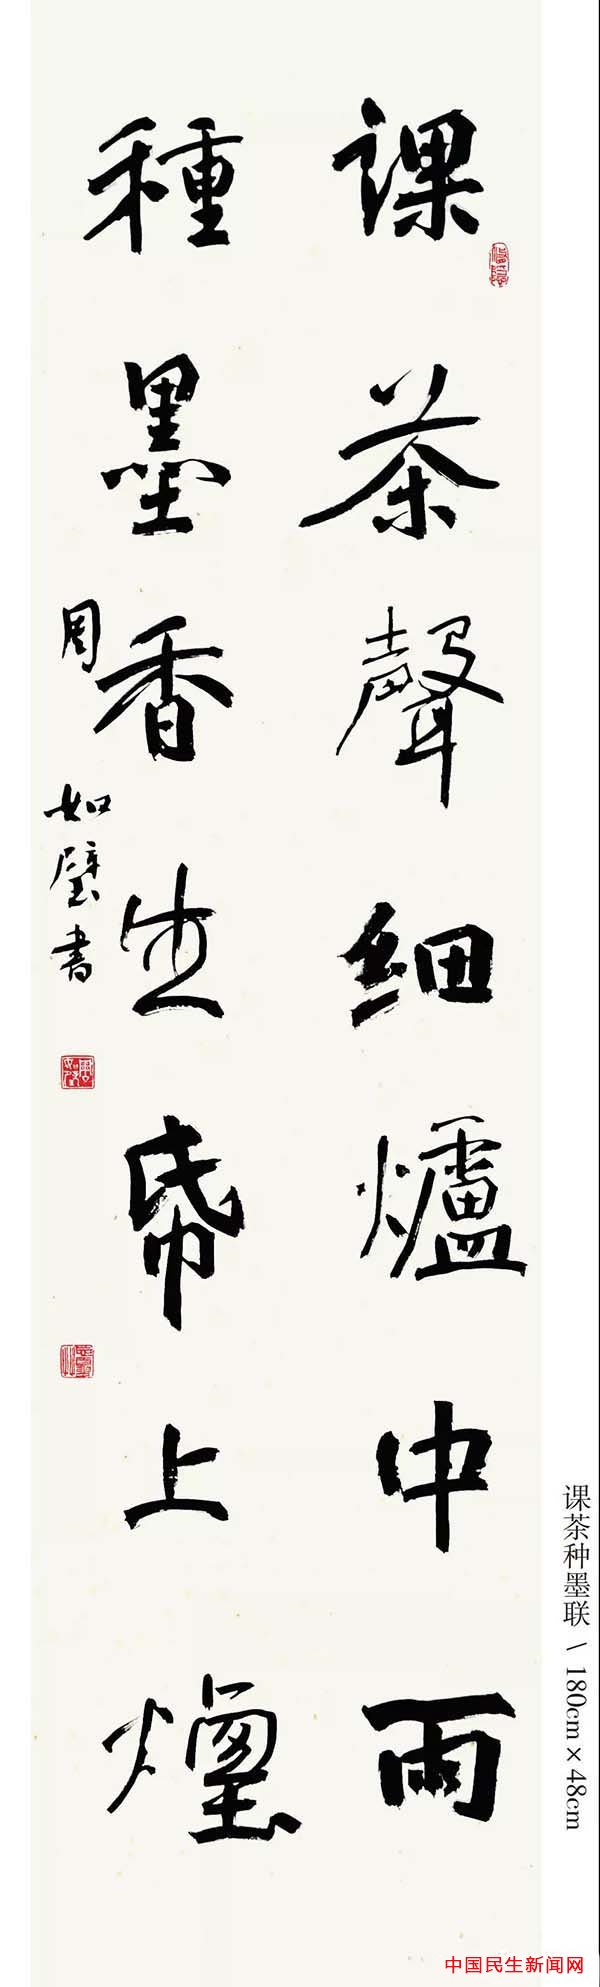 課茶聲細爐中雨
種墨香生帋上煙
周如璧書
课茶种墨联 \ 180cm×48cm
中国民生新闻网